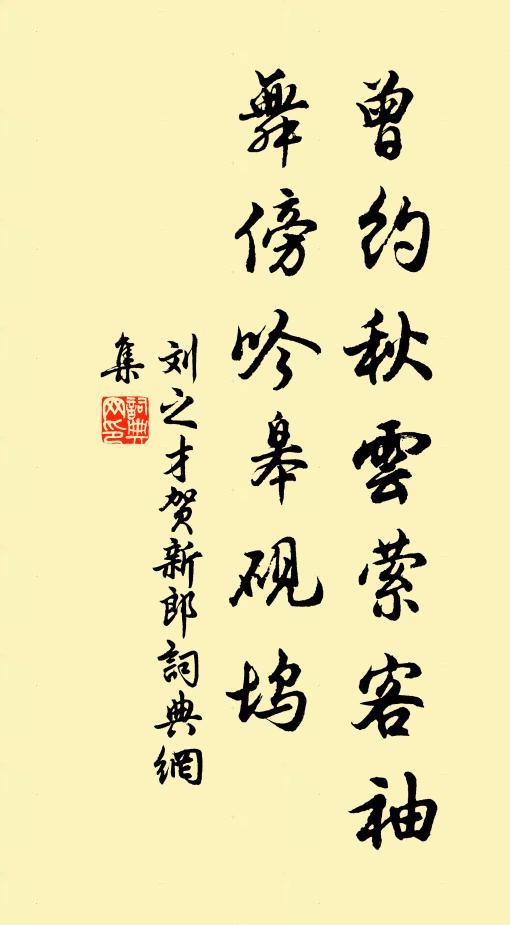 曾约秋雲萦客袖
舞傍吟皋砚坞
刘之才贺新郎詞典網
集
詞典
网印